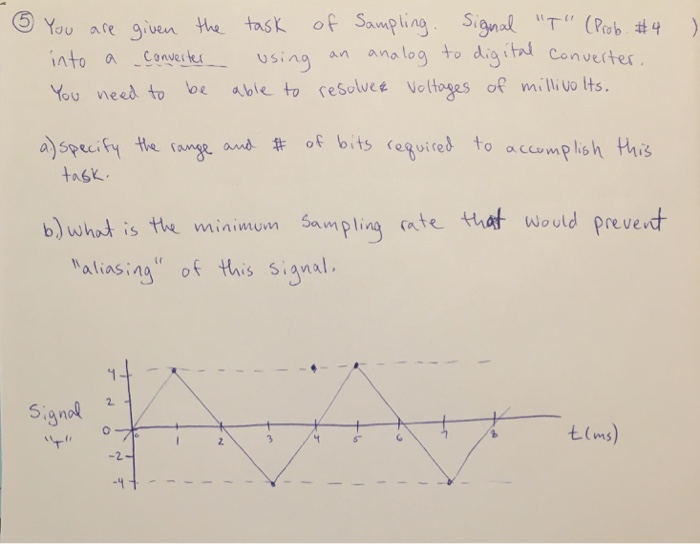 5 You are given the task of Sampling. Signal "T" (Prob. #4 )
into a Converter using an analog to digital converter.
You need to be able to resolve voltages of millivolts.
a) Specify the range and # of bits required to accomplish this
task.
b) What is the minimum Sampling rate that would prevent
"aliasing" of this signal.
4
2
0
-2
-4
Signal
"T"
1 2 3 4 5 6 7 8
t(ms)